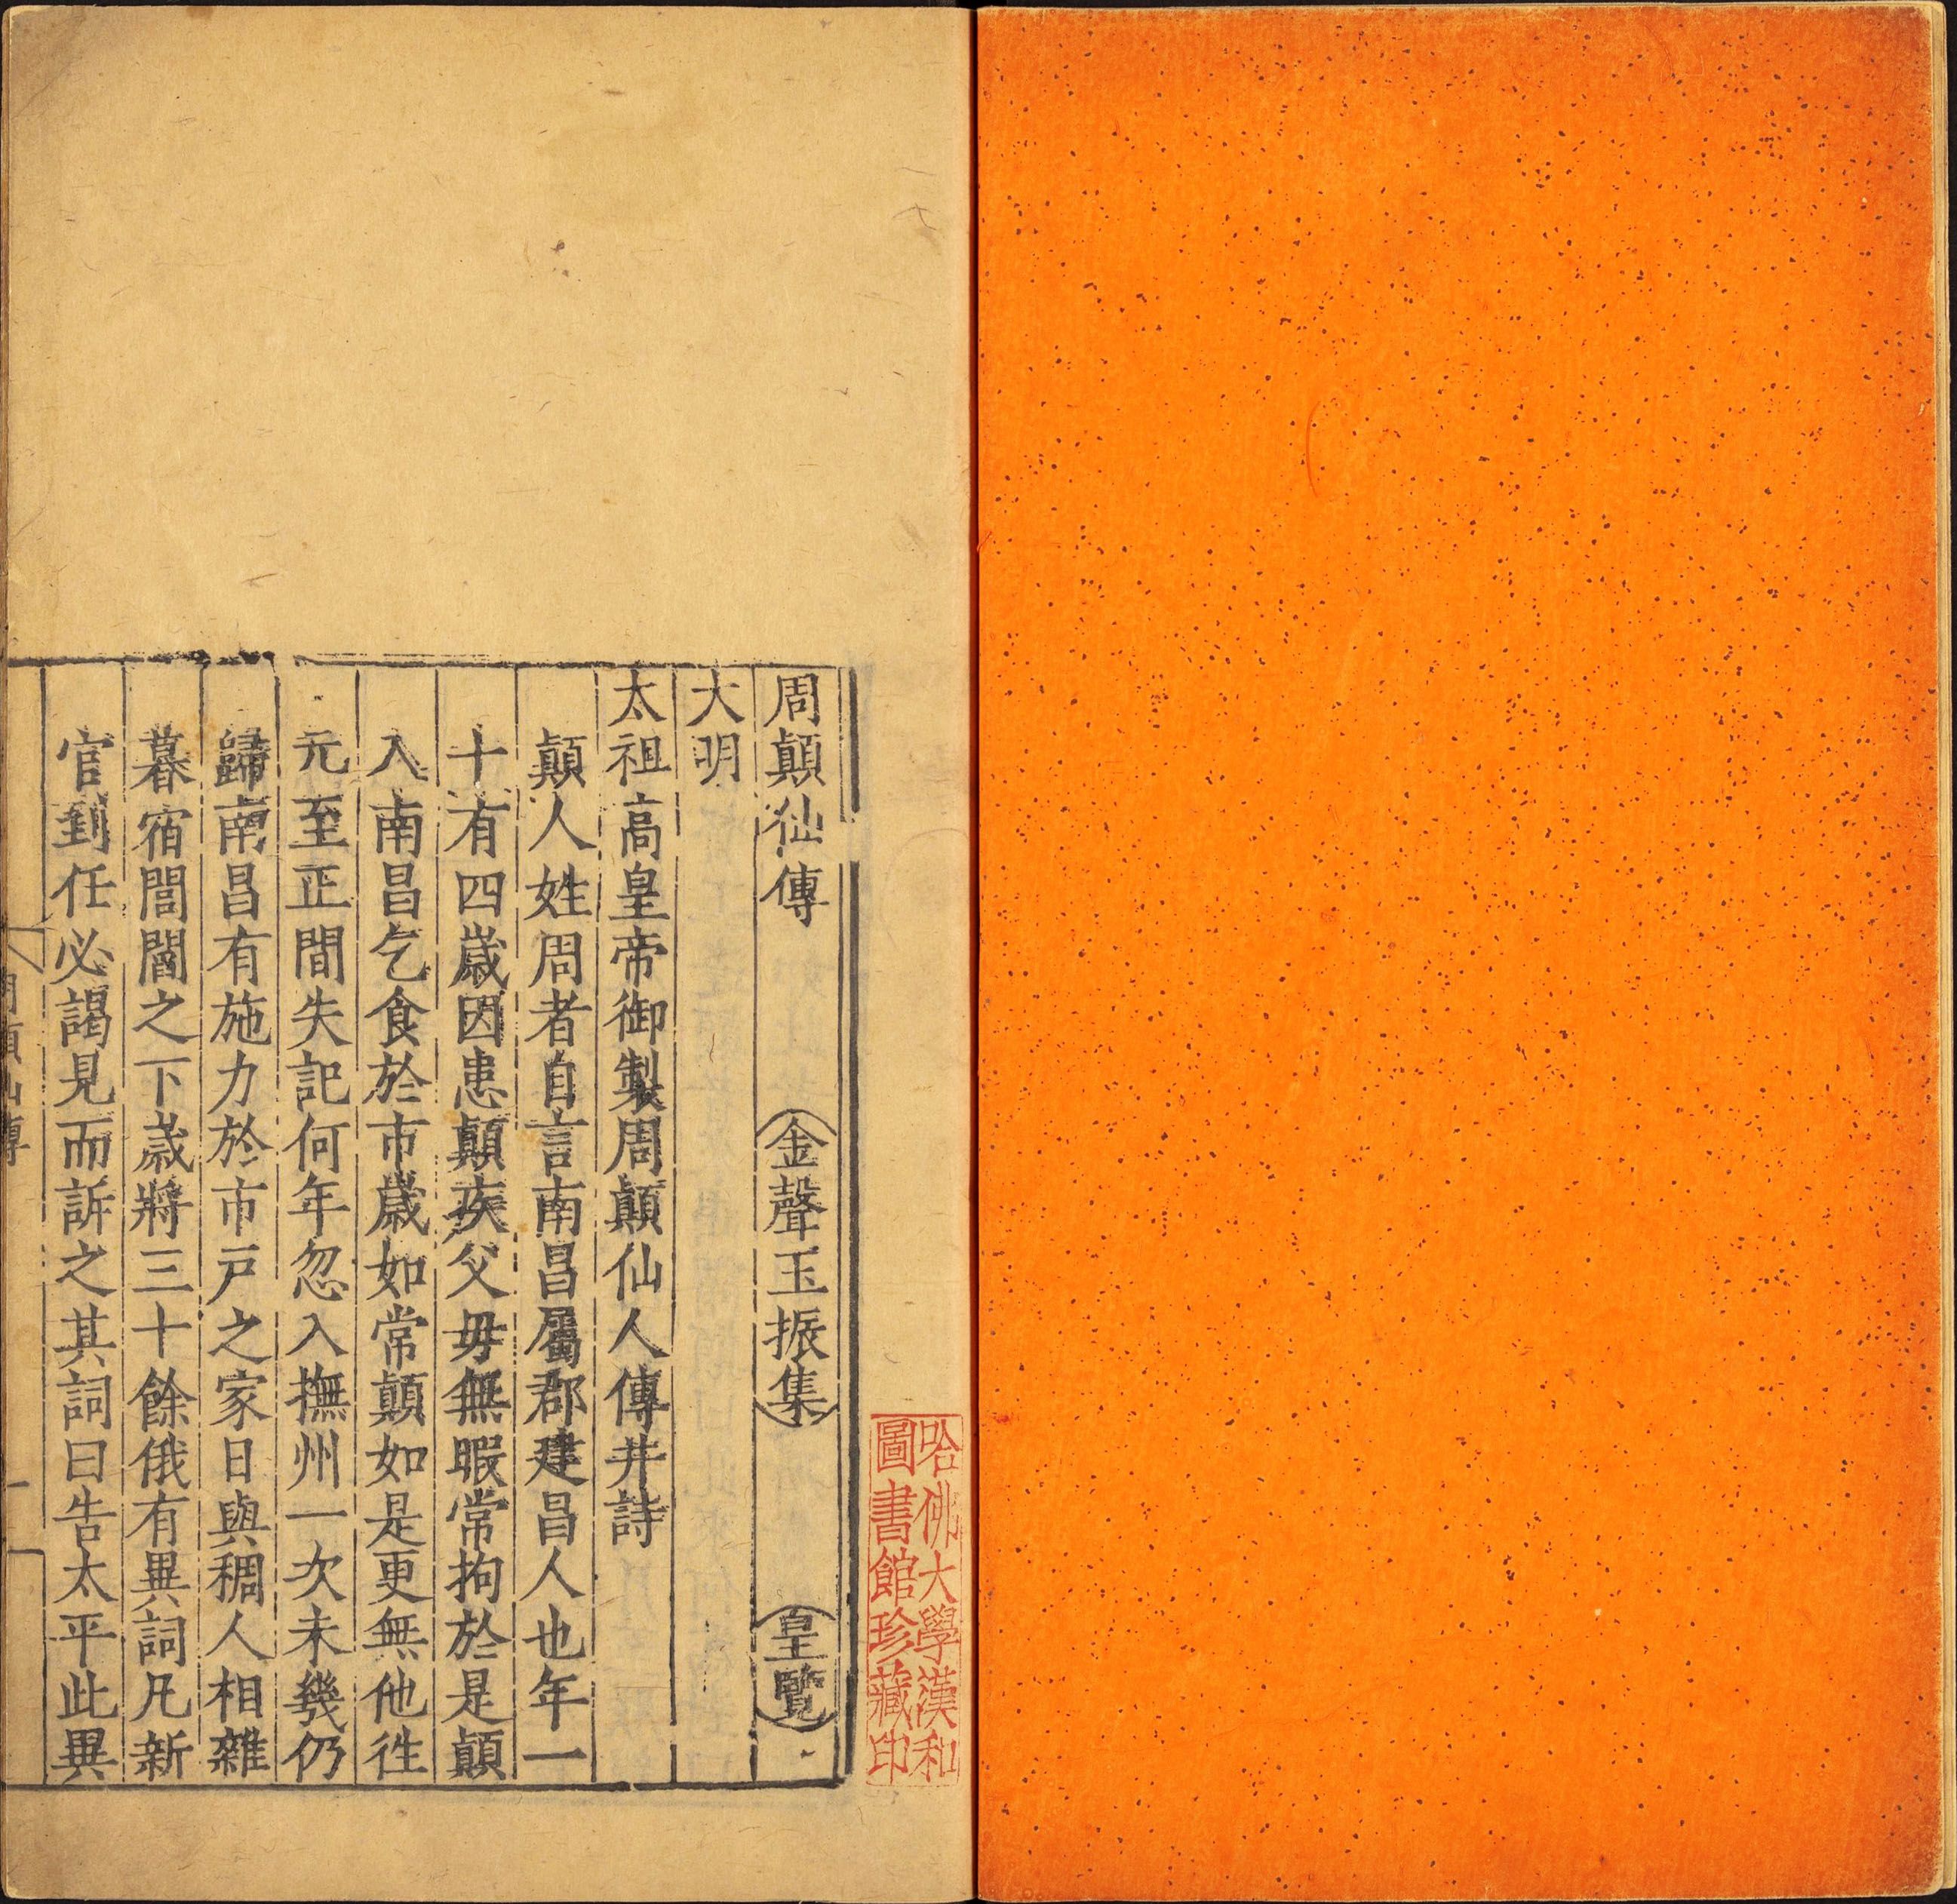 周顛仙傳 金聲玉振集 皇覽
大明
太祖高皇帝御製周顛仙人傳并詩
顛人姓周者自言南昌屬郡建昌人也年一
十有四歲因患顛疾父毋無暇常拘於是顛
入南昌乞食於市歲如常顛如是更無他徃
元至正間失記何年忽入撫州一次未幾仍
歸南昌有施力於市戸之家日與稠人相雜
暮宿閭閻之下歲將三十餘俄有異詞凡新
官到任必謁見而訴之其詞曰告太平此異
周顛仙傳
哈佛大學漢和
圖書館珍藏印